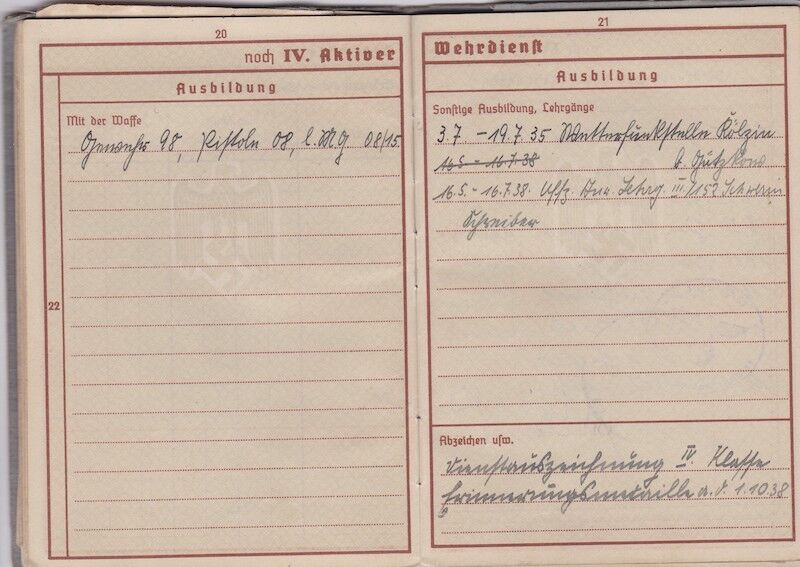 20
noch IV. Aktiver
Ausbildung
Mit der Waffe
Gewehr 98, Pistole 08, l. MG 08/15.
22
21
Wehrdienst
Ausbildung
Sonstige Ausbildung, Lehrgänge
3.7 – 19.7.35 Wetterfunkstelle Kölzin
16.5 – 16.7.38 b. Gützkow
16.5. – 16.7.38. Uffz. Lehrg. III/152 Schwerin
Schreiber
Abzeichen usw.
Dienstauszeichnung IV. Klasse
Erinnerungsmedaille a. d. 1.10.38